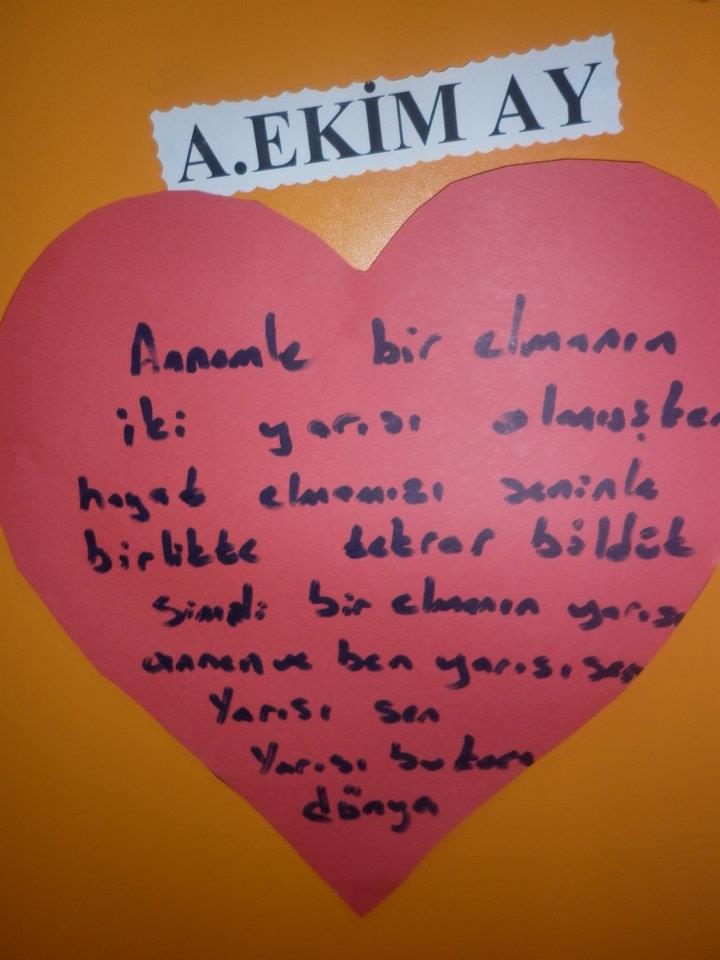 A.EKİM AY
Annemle bir elmanın
iki yarısı olmuşken
hayat elmamızı seninle
birlikte tekrar böldük
Şimdi bir elmanın yarısı
annen ve ben yarısı sen
Yarısı sen
Yarısı bu koca
dünya